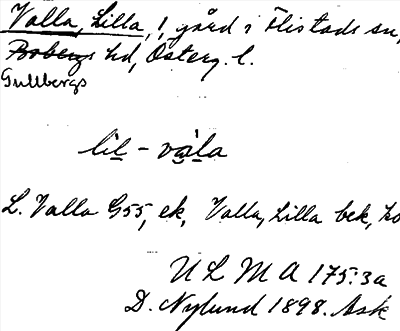 Valla, Lilla, 1, gård i Flistads sn,
Bobergs hd, Österg. l.
Gullbergs
lil - vàla
L. Valla G55, ek, Valla, Lilla bek, ko
U L M A 175:3a
D. Nylund 1898. Ask